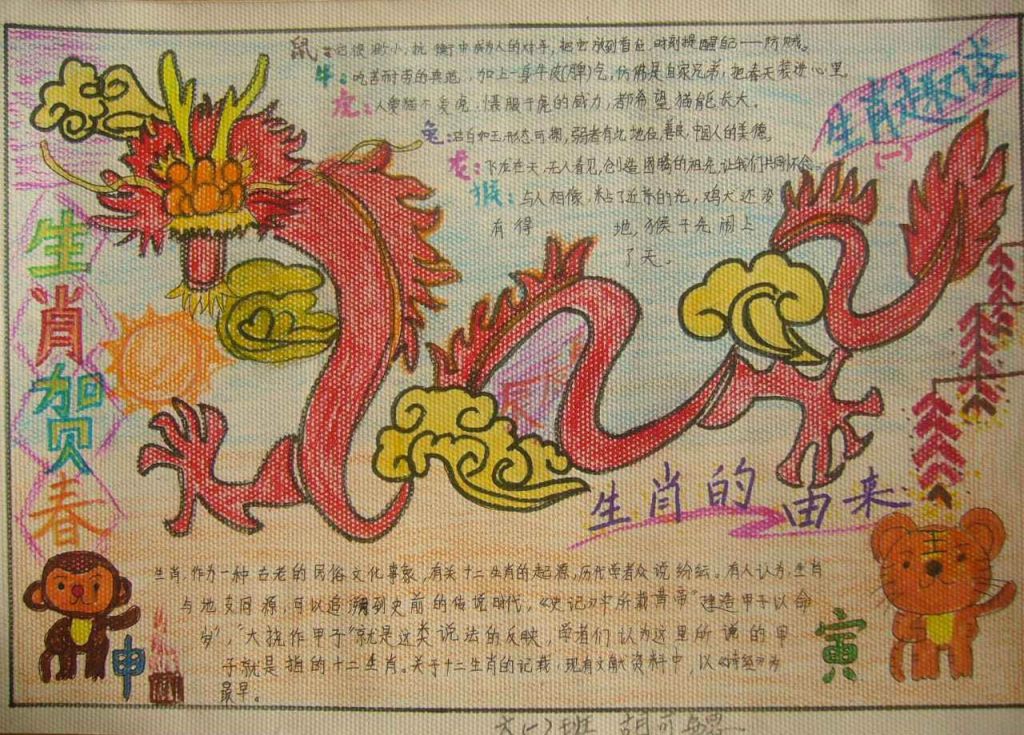 生肖趣谈
(一)
鼠：它很渺小，抗衡中成为人的对手，把它放到首位，时刻提醒自己——防贼。
牛：吃苦耐劳的典范，加上一身牛皮(脾)气，仿佛是自家兄弟，把春天装进心里。
虎：人要猫不要虎，慑服于虎的威力，都希望猫能长大。
兔：洁白如玉，形态可掬，弱者有此地位，善良，中国人的美德。
龙：飞龙在天，无人看见，创造图腾的祖先，让我们共同怀念。
猴：与人相像，粘了近亲的光，鸡犬还没
有得 地，猴子先闹上
了天。
生肖贺春
生肖的由来
生肖，作为一种古老的民俗文化事象，有关十二生肖的起源，历代学者众说纷纭。有人认为，生肖
与地支同源，可以追溯到史前的传说时代，《史记》中所载黄帝"建造甲子以命
岁"，"大挠作甲子"就是这类说法的反映，学者们认为这里所说的甲
子就是指的十二生肖。关于十二生肖的记载，现有文献资料中，以《诗经》为
最早。
申
寅
六(一)班 胡可